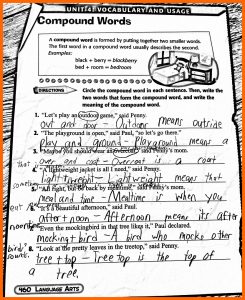 UNIT 4: VOCABULARY AND USAGE
Compound Words
A compound word is formed by putting together two smaller words.
The first word in a compound word usually describes the second.
Examples:
black + berry = blackberry
bed + room = bedroom
DIRECTIONS Circle the compound word in each sentence. Then, write the
two words that form the compound word, and write the
meaning of the compound word.
1. "Let's play an outdoor game," said Penny.
out and door - Outdoor means outside
2. "The playground is open," said Paul, "so let's go there."
play and ground - Playground means a
3. said Penny's mom.
over and coat - Overcoat is a coat
that
4. "A lightweight jacket is all I need," said Penny.
light + weight - Lightweight means that
5. "All right, but be back by mealtime," said Penny's mom.
meal and time - Mealtime is when you
6. "It's a beautiful afternoon," said Paul.
after + noon - Afternoon means its after
noon
7. "Even the mockingbird in that tree likes it," Paul declared.
mocking + bird - A bird who mocks other
birds'
sounds.
8. "Look at the pretty leaves in the treetop," said Penny.
tree + top - Treetop is the top of
a tree.
460 LANGUAGE ARTS